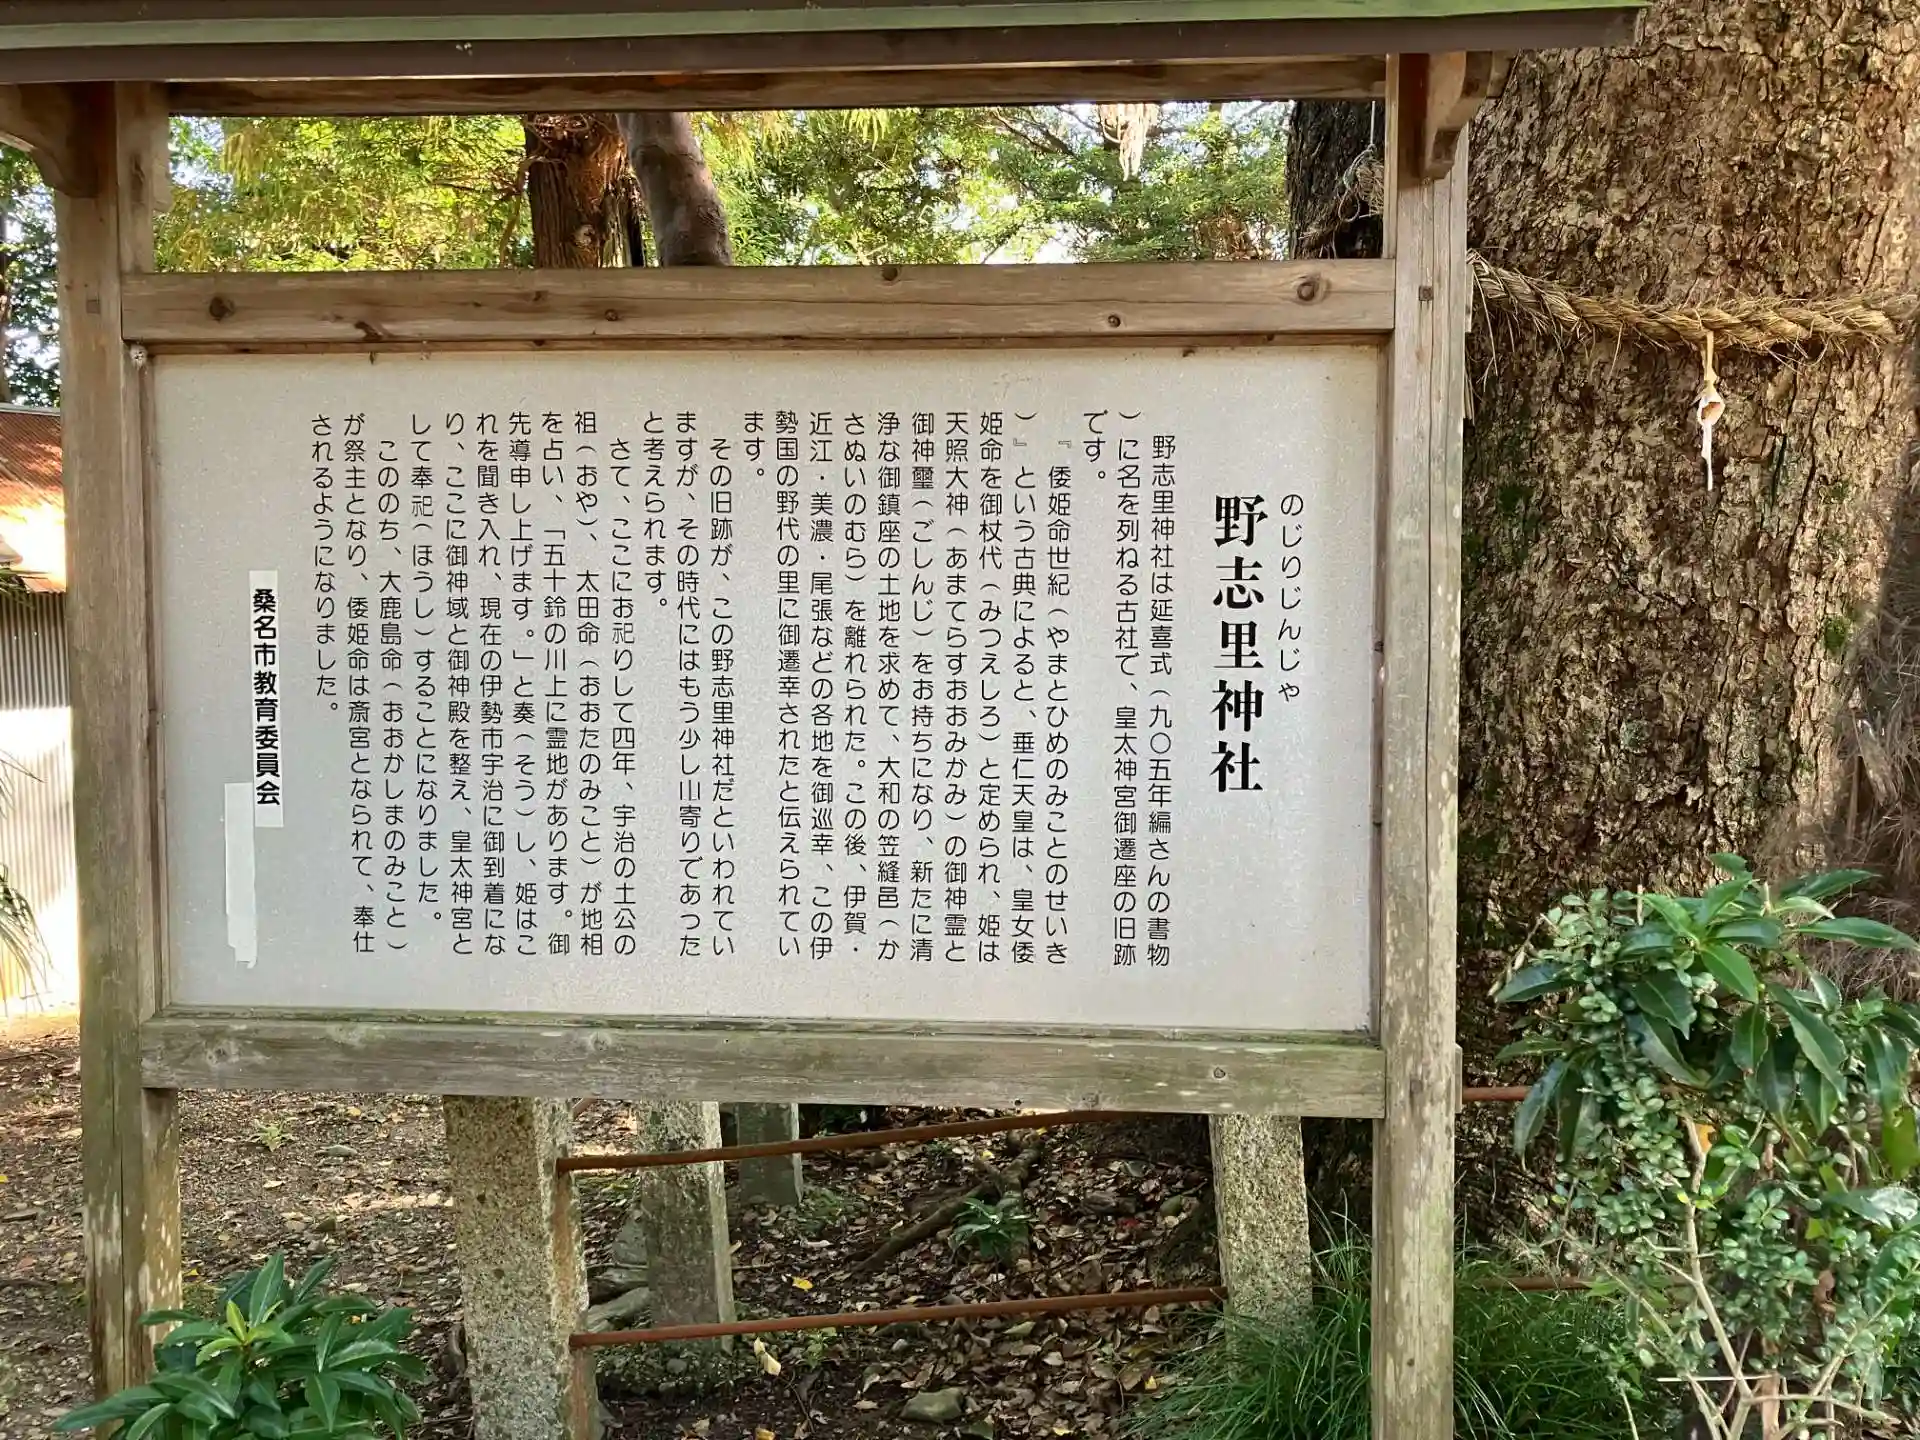 のじりじんじゃ
野志里神社
野志里神社は延喜式(九〇五年編さんの書物
)に名を列ねる古社で、皇太神宮御遷座の旧跡
です。
『倭姫命世紀(やまとひめのみことのせいき
)』という古典によると、垂仁天皇は、皇女倭
姫命を御杖代(みつえしろ)と定められ、姫は
天照大神(あまてらすおおみかみ)の御神霊と
御神璽(ごしんじ)をお持ちになり、新たに清
浄な御鎮座の土地を求めて、大和の笠縫邑(か
さぬいのむら)を離れられた。この後、伊賀・
近江・美濃・尾張などの各地を御巡幸、この伊
勢国の野代の里に御遷幸されたと伝えられてい
ます。
その旧跡が、この野志里神社だといわれてい
ますが、その時代にはもう少し川寄りであった
と考えられます。
さて、ここにお祀りして四年、宇治の土公の
祖(おや)、太田命(おおたのみこと)が地相
を占い、「五十鈴の川上に霊地があります。御
先導申し上げます。」と奏(そう)し、姫はこ
れを聞き入れ、現在の伊勢市宇治に御到着にな
り、ここに御神域と御神殿を整え、皇太神宮と
して奉祀(ほうし)することになりました。
こののち、大鹿島命(おおかしまのみこと)
が祭主となり、倭姫命は斎宮となられて、奉仕
されるようになりました。
桑名市教育委員会